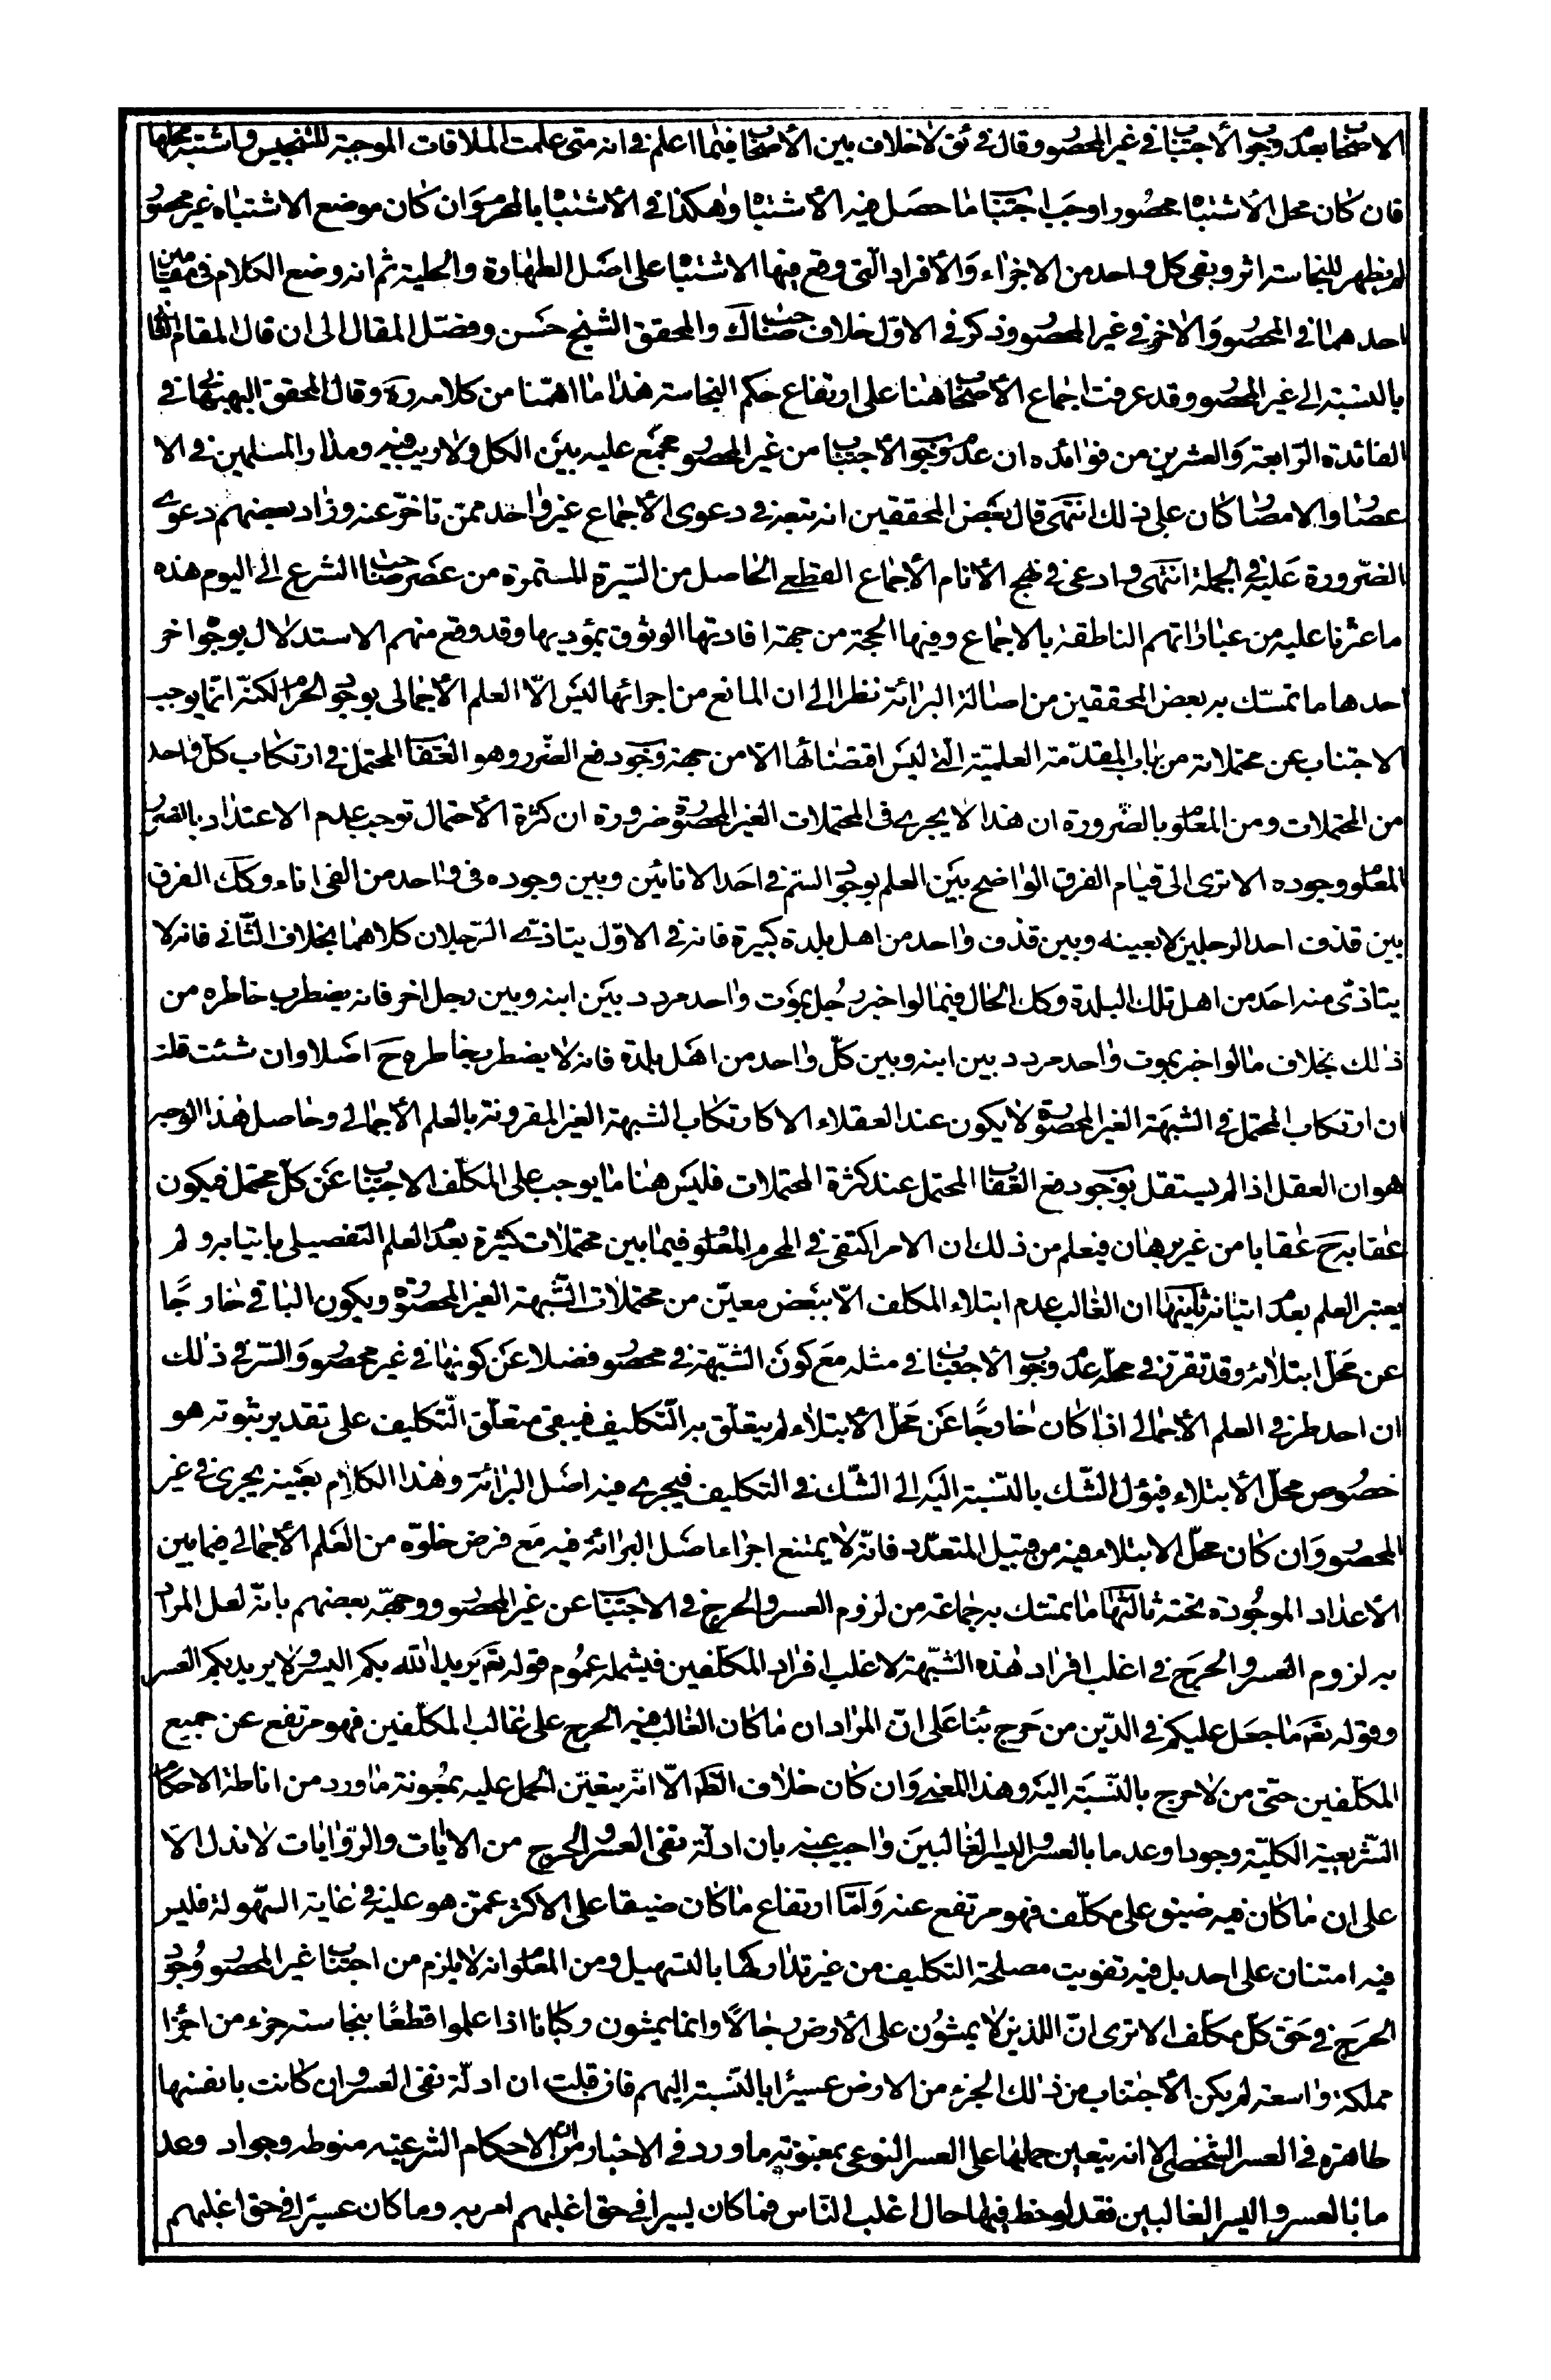 الاصحاب بعدم وجوب الأجتناب في غير المحصور وقال في ئق لا خلاف بين الأصحاب فيما اعلم في انه متى علمت الملاقات الموجبة للتنجيس واشتبه محلها
فان كان محل الأشتباه محصورا وجب اجتناب ما حصل فيه الأشتباه وهكذا في الأشتباه بالمحرم وان كان موضع الاشتباه غير محصور
لم يظهر للنجاسته اثر وبقى كل واحد من الاجزاء والأفراد الّتي وقع فيها الاشتباه على اصل الطهارة والحلية ثم انه وضع الكلام في مقامين
احدهما في المحصور والاخر في غير المحصور وذكر في الاوّل خلاف صاحب ك والمحقق الشيخ حسن وفصّل المقال الى ان قال المقام الثاني
بالنسبته الى غير المحصور وقد عرفت اجماع الأصحاب هنا على ارتفاع حكم النجاسته هذا ما اهمّنا من كلامه ره وقال المحقق البهبهاني في
الفائدة الرّابعة والعشرين من فوائده ان عدم وجوب الأجتناب من غير المحصور مجمع عليه بين الكل ولا ريب فيه ومدار المسلمين في الا
عصار والامصار كان على ذلك انتهى قال بعض المحققين انه تبعه في دعوى الأجماع غير واحد ممّن تاخّر عنه وزاد بعضهم دعوى
الضّرورة عليه في الجملة انتهى وادعى في نهج الأنام الاجماع القطعي الحاصل من السّيرة المستمرة من عصر صاحب الشرع الى اليوم هذه
ما عثرنا عليه من عباراتهم الناطقة بالاجماع وفيها الحجة من جهة افادتها الوثوق بمؤديها وقد وقع منهم الاستدلال بوجوه اخر
احدها ما تمسّك به بعض المحققين من اصالة البرائة نظرا الى ان المانع من اجرائها ليس الّا العلم الأجمالى بوجود الحرام لكنّه انّما يوجب
الاجتناب عن محتملاته من باب المقدّمة العلميّة الّتي ليس اقتضائها الّا من جهة وجوب دفع الضّرر وهو العقاب المحتمل في ارتكاب كلّ واحد
من المحتملات ومن المعلوم بالضّرورة ان هذا لا يجرى في المحتملات الغير المحصورة ضرورة ان كثرة الأحتمال توجب عدم الاعتداد بالضرر
المعلوم وجوده الا ترى الى قيام الفرق الواضح بين العلم بوجود السّم في احد الانائين وبين وجوده في واحد من الفى اناء وكك الفرق
بين قذف احد الرجلين لا بعينه وبين قذف واحد من اهل بلدة كبيرة فانه في الاوّل يتاذى الرّجلان كلاهما بخلاف الثّاني فانه لا
يتاذّى منه احد من اهل تلك البلدة وكك الحال فيما لو اخبر رجل بموت واحد مردد بين ابنه وبين رجل اخر فانه يضطرب خاطره من
ذلك بخلاف ما لو اخبر بموت واحد مردد بين ابنه وبين كلّ واحد من اهل بلدة فانه لا يضطرب خاطره ح اصلا وان شئت قلت
ان ارتكاب المحتمل في الشبهة الغير المحصورة لا يكون عند العقلاء الا كارتكاب الشبهة الغير المقرونة بالعلم الأجمالى وحاصل هذا الوجه
هو ان العقل اذا لم يستقل بوجوب دفع العقاب المحتمل عند كثرة المحتملات فليس هنا ما يوجب على المكلّف الاجتناب عن كلّ محتمل فيكون
عقابه ح عقابا من غير برهان فيعلم من ذلك ان الامر اكتفى في المحرم المعلوم فيما بين محتملات كثيرة بعدم العلم التفصيلى باتيانه ولم
يعتبر العلم بعدم اتيانه ثانيها ان الغالب عدم ابتلاء المكلف الّا ببعض معيّن من محتملات الشّبهة الغير المحصورة ويكون الباقي خارجًا
عن محلّ ابتلائه وقد تقرّر في محلّه عدم وجوب الأجتناب في مثله مع كون الشبّهة في محصور فضلا عن كونها في غير محصور والسّر في ذلك
ان احد طرفي العلم الأجمالي اذا كان خارجًا عن محلّ الأبتلاء لم يتعلّق به الّتكليف فيبقى متعلّق الّتكليف على تقدير ثبوته هو
خصوص محلّ الأبتلاء فيؤل الشّك بالنّسبة اليه الى الشّك في التكليف فيجرى فيه اصل البرائة وهذا الكلام بعينه يجرى في غير
المحصور وان كان محلّ الابتلاء فيه من قبيل المتعدّد فانّه لا يمتنع اجراء اصل البرائة فيه مع فرض خلوّه من العلم الأجمالي فيما بين
الأعداد الموجودة تحته ثالثها ما تمسّك به جماعة من لزوم العسر والحرج في الاجتناب عن غير المحصور ووجّهه بعضهم بانّه لعل المراد
به لزوم العسر والحرج في اغلب افراد هذه الشّبهة لاغلب افراد المكلّفين فيشمله عموم قوله تع يريد الله بكم اليسر ولا يريد بكم العسر
وقوله تع ما جعل عليكم في الدّين من حرج بناء على انّ المراد ان ما كان الغالب فيه الحرج على غالب المكلّفين فهو مرتفع عن جميع
المكلّفين حتّى من لا حرج بالنّسبة اليه وهذا المعنى وان كان خلاف الظّم الّا انّه يتعيّن الحمل عليه بمعونة ما ورد من اناطة الاحكام
الشّرعيّة الكليّة وجودا وعدما بالعسر واليسر الغالبين واجيب عنه بان ادلّة نفى العسر والحرج من الايات والرّوايات لا تدل الا
على ان ما كان فيه ضيق على مكلّف فهو مرتفع عنه وامّا ارتفاع ما كان ضيقا على الاكثر عمّن هو عليه في غاية السّهولة فليس
فيه امتنان على احد بل فيه تفويت مصلحة التكليف من غير تداركها بالتسهيل ومن المعلوم انه لا يلزم من اجتناب غير المحصور وجود
الحرج في حق كلّ مكلّف الا ترى انّ الذين لا يمشون على الأرض رجالًا وانما يمشون ركبانا اذا علموا قطعًا بنجاسته جزء من اجزاء
مملكة واسعة لم يكن الأجتناب من ذلك الجزء من الارض عسيرًا بالنّسبة اليهم فان قلت ان ادلّة نفى العسر وان كانت بانفسها
ظاهرة في العسر الشخصى الا انه يتعين حملها على العسر النوعى بمعونة ما ورد في الاخبار من ان الاحكام الشرعيّة منوطه وجوادا وعد
ما بالعسر واليسر الغالبين فقد لوحظ فيها حال اغلب النّاس فما كان يسيرا في حق اغلبهم امر به وما كان عسيرًا في حق اغلبهم